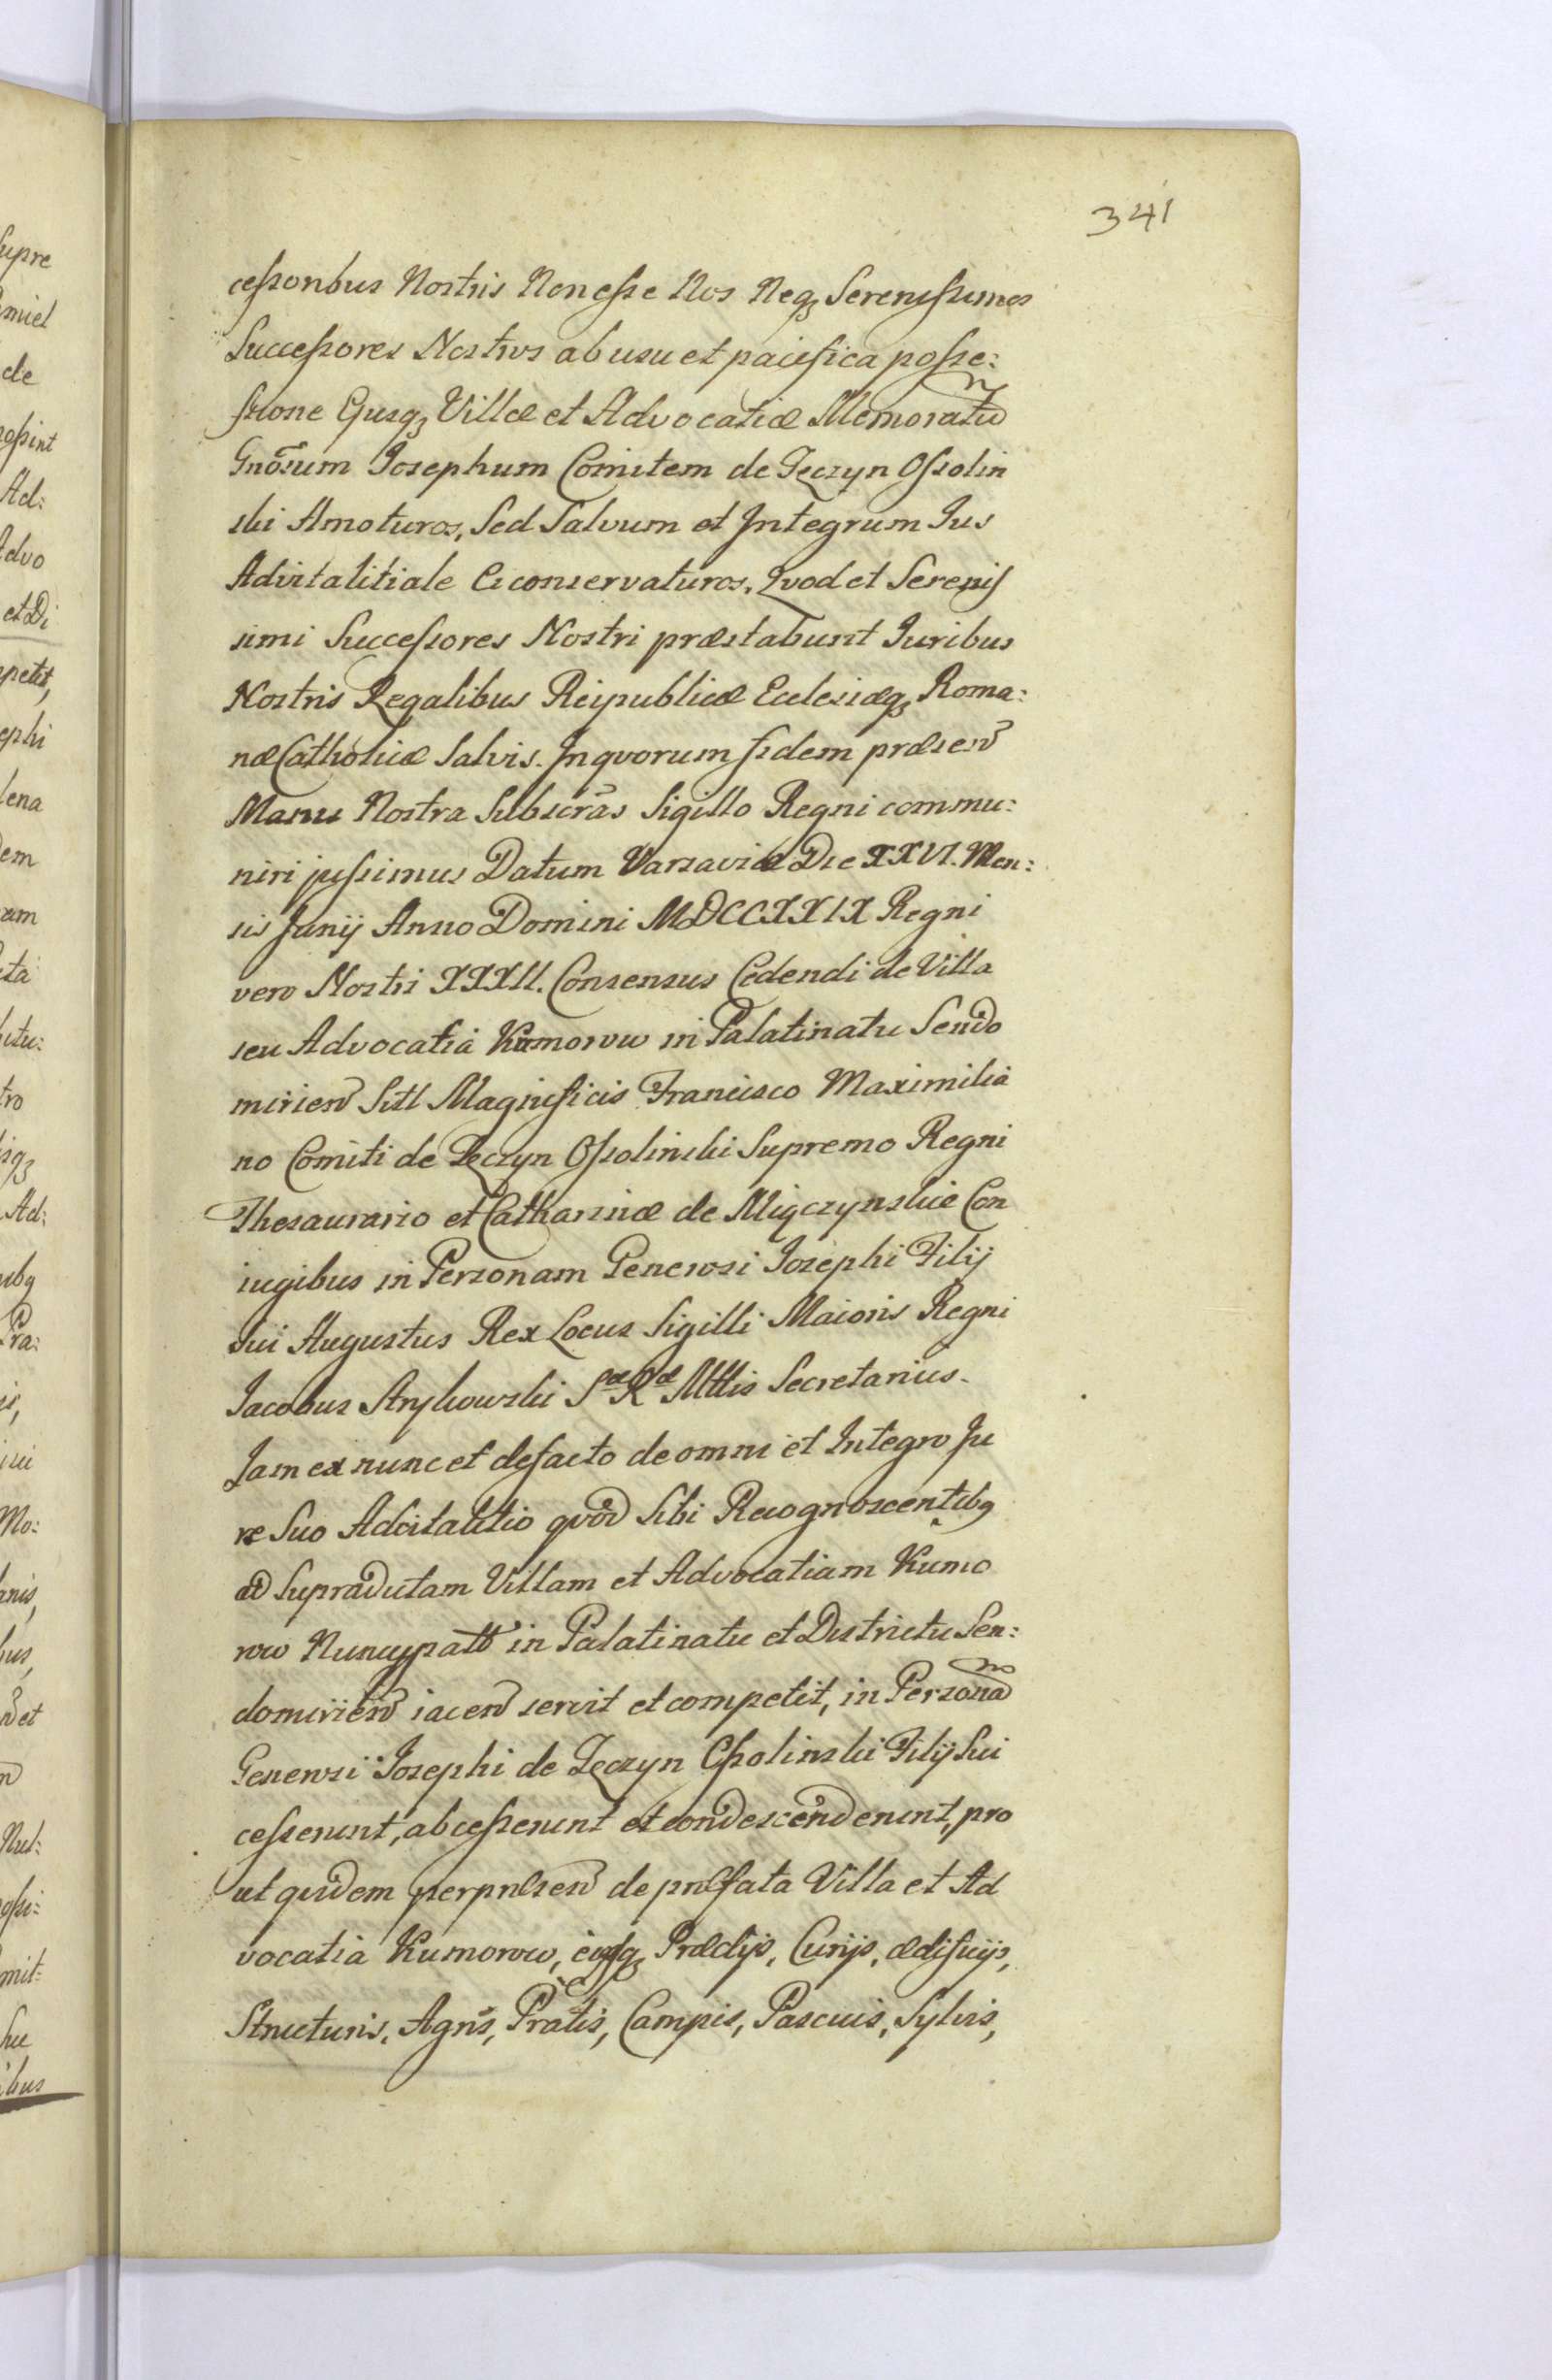 341
cessoribus Nostris Non esse Nos Neqꝫ Serenissimos
Successores Nostros ab usu et pacifica posse:
ssione Ejusqꝫ Villæ et Advocatiæ Memoratũ
Gnõsum Josephum Comitem de Tęczyn Ossolin
ski Amoturos, Sed Salvum et Integrum Jus
Advitalitiale Ei conservaturos. Qvod et Serenis
simi Successores Nostri præstabunt Juribus
Nostris Regalibus Reipublicæ Ecclesiæqꝫ Roma:
næ Catholicæ Salvis. In qvorum fidem præsen̄
Manu Nostra Subscr̃as Sigillo Regni commu:
niri jussimus Datum Varsaviæ Die XXVI. Men:
sis Junij Anno Domini MDCCXXIX Regni
vero Nostri XXXII. Consensus Cedendi de Villa
seu Advocatia Kumorow in Palatinatu Sendo
mirien̄ Sitt Magnificis Francisco Maximilia
no Comiti de Tęczyn Ossolinski Supremo Regni
Thesaurario et Catharinæ de Miączynskie Con
iugibus in Personam Generosi Josephi Filij
Sui Augustus Rex Locus Sigilli Maioris Regni
Jacobus Strykowski Sæ Ræ Mttis Secretarius.
Jam ex nunc et defacto de omni et Integro Ju
re Suo Advitalitio qvod Sibi Recognoscentibq
ad Supradictam Villam et Advocatiam Kumo
row Nuncupatt in Palatinatu et Districtu Sen:
domirien̄ iacen̄ servit et competit, in Personã
Generosi Josephi de Tęczyn Ossolinski Filij Sui
cesserunt, abcesserunt et condescenderunt, pro
ut quidem per pn̄lsen̄ de pn̄lfata Villa et Ad
vocatia Kumorow, eiusqꝫ Prædijs, Curijs, ædificijs,
Structuris, Agris, Pratis, Campis, Pascuis, Sylvis,